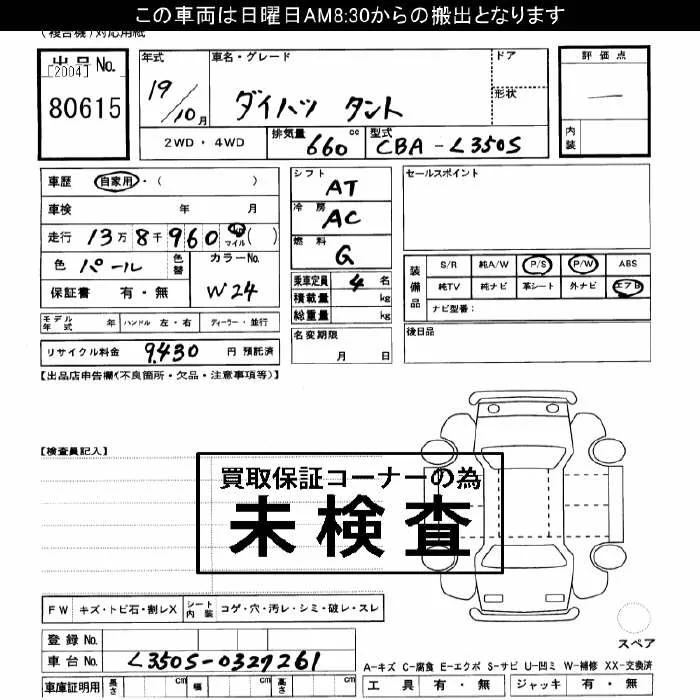 この車両は日曜日AM8:30からの搬出となります
(複合機)対応用紙
出品No. [2004] 80615
年式 19/10月
車名・グレード ダイハツ タント
ドア
形状
評価点 —
内装
2WD・4WD
排気量 660 cc
型式 CBA-L350S
車歴 自家用・( )
車検 年 月
走行 13万8千960 km マイル ( )
色 パール 色替
カラーNo. W24
保証書 有・無
シフト AT
冷房 AC
燃料 G
乗車定員 4 名
積載量 kg
総重量 kg
セールスポイント
装備品 S/R 純A/W P/S P/W ABS
純TV 純ナビ 革シート 外ナビ エアB
ナビ型番:
モデル年式 年 ハンドル 左・右 ディーラー・並行
名変期限 月 日
後日品
リサイクル料金 9,430 円 預託済
【出品店申告欄(不良箇所・欠品・注意事項等)】
【検査員記入】
買取保証コーナーの為
未検査
FW キズ・トビ石・割レX シート内装 コゲ・穴・汚レ・シミ・破レ・スレ
登録No.
車台No. L350S-0327261
スペア
A-キズ C-腐食 E-エクボ S-サビ U-凹ミ W-補修 XX-交換済
車庫証明用 長さ cm 幅 cm 高さ cm
工具 有・無 ジャッキ 有・無